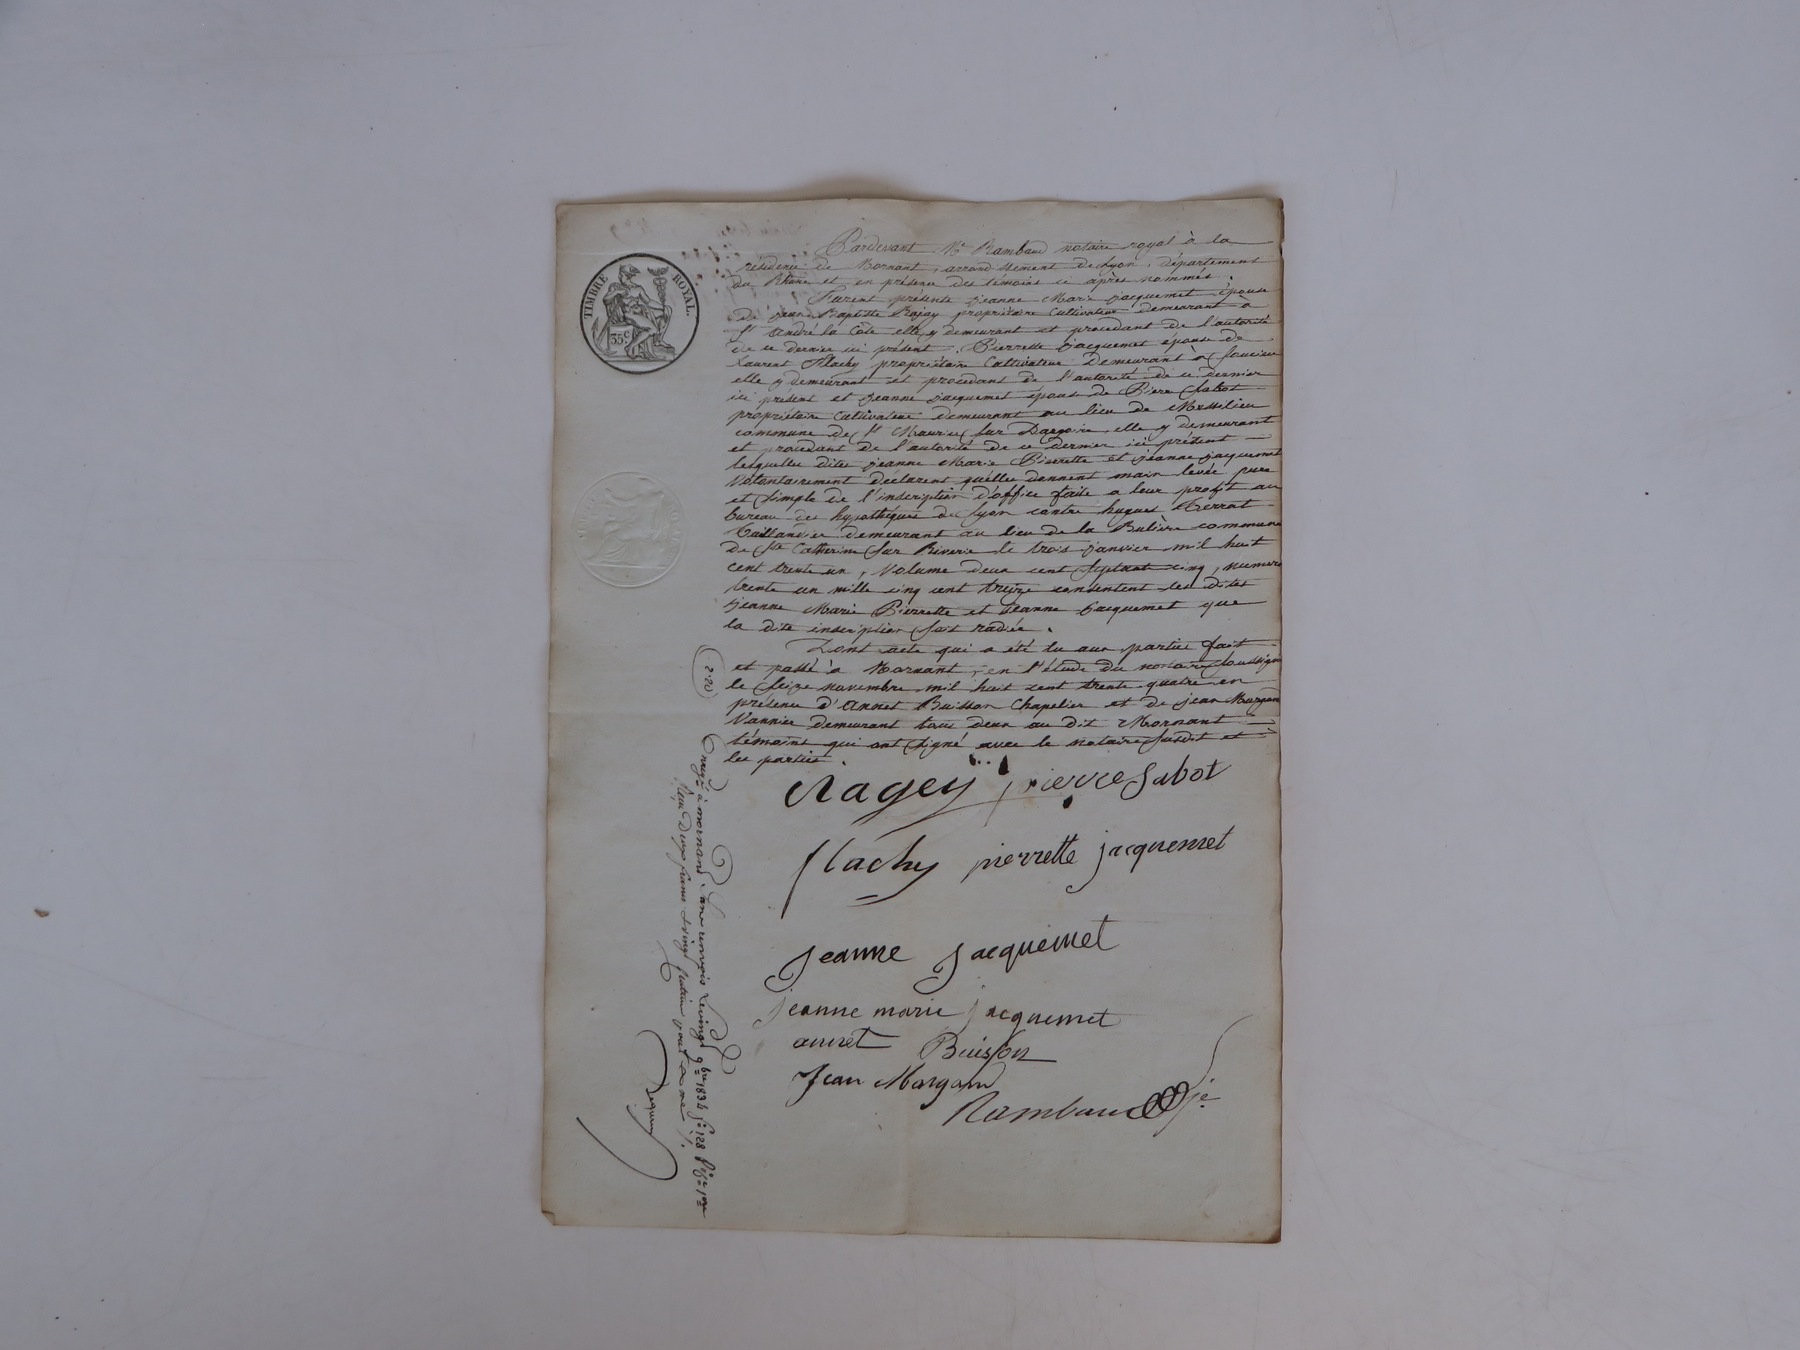 TIMBRE ROYAL.
35 C.
Pardevant Me Rambaud notaire royal à la
résidence de Mornant, arrondissement de Lyon, département
du Rhône et en présence des témoins ci après nommés.
Furent présents jeanne Marie jacquemet épouse
de jean Baptiste Rajay propriétaire Cultivateur demeurant à
St André la Côte elle y demeurant et procédant de l'autorité
de ce dernier ici présent, Pierrette jacquemet épouse de
Laurent Flachy propriétaire Cultivateur demeurant à Soucieu
elle y demeurant et procédant de l'autorité de ce dernier
ici présent et jeanne jacquemet épouse de Pierre Sabot
propriétaire Cultivateur demeurant au lieu de Messilieu
commune de St Maurice sur Dargoire, elle y demeurant
et procédant de l'autorité de ce dernier ici présent
lesquelles dites jeanne Marie Pierrette et jeanne jacquemet
Volontairement déclarent qu'elles donnent main levée pure
et Simple de l'inscription d'office faite a leur profit au
bureau des hypothéques de Lyon contre hugues Terrat
Taillandier demeurant au lieu de la Bulière commune
de Ste Catherine Sur Riverie le trois janvier mil huit
cent trente un, Volume deux cent Septante cinq, numero
trente un mille cinq cent treize consentent les dites
jeanne Marie Pierrette et jeanne jacquemet que
la dite inscription soit radiée.
Dont acte qui a été lu aux parties fait
et passé à Mornant, en l'étude du notaire Soussigné
le Seize novembre mil huit cent trente quatre en
présence d'Annet Buisson Chapelier et de jean Margand
Vannier demeurant tous deux au dit Mornant
témoins qui ont Signé avec le notaire Susdit et
les parties.
Ragey pierre Sabot
flachy pierrette jacquemet
Jeanne Jacquemet
jeanne marie jacquemet
annet Buisson
Jean Margand
Rambaud
2.20
Enregé à mornand, Le vingt 9bre 1834 fo 128
Reçu Deux francs vingt centimes